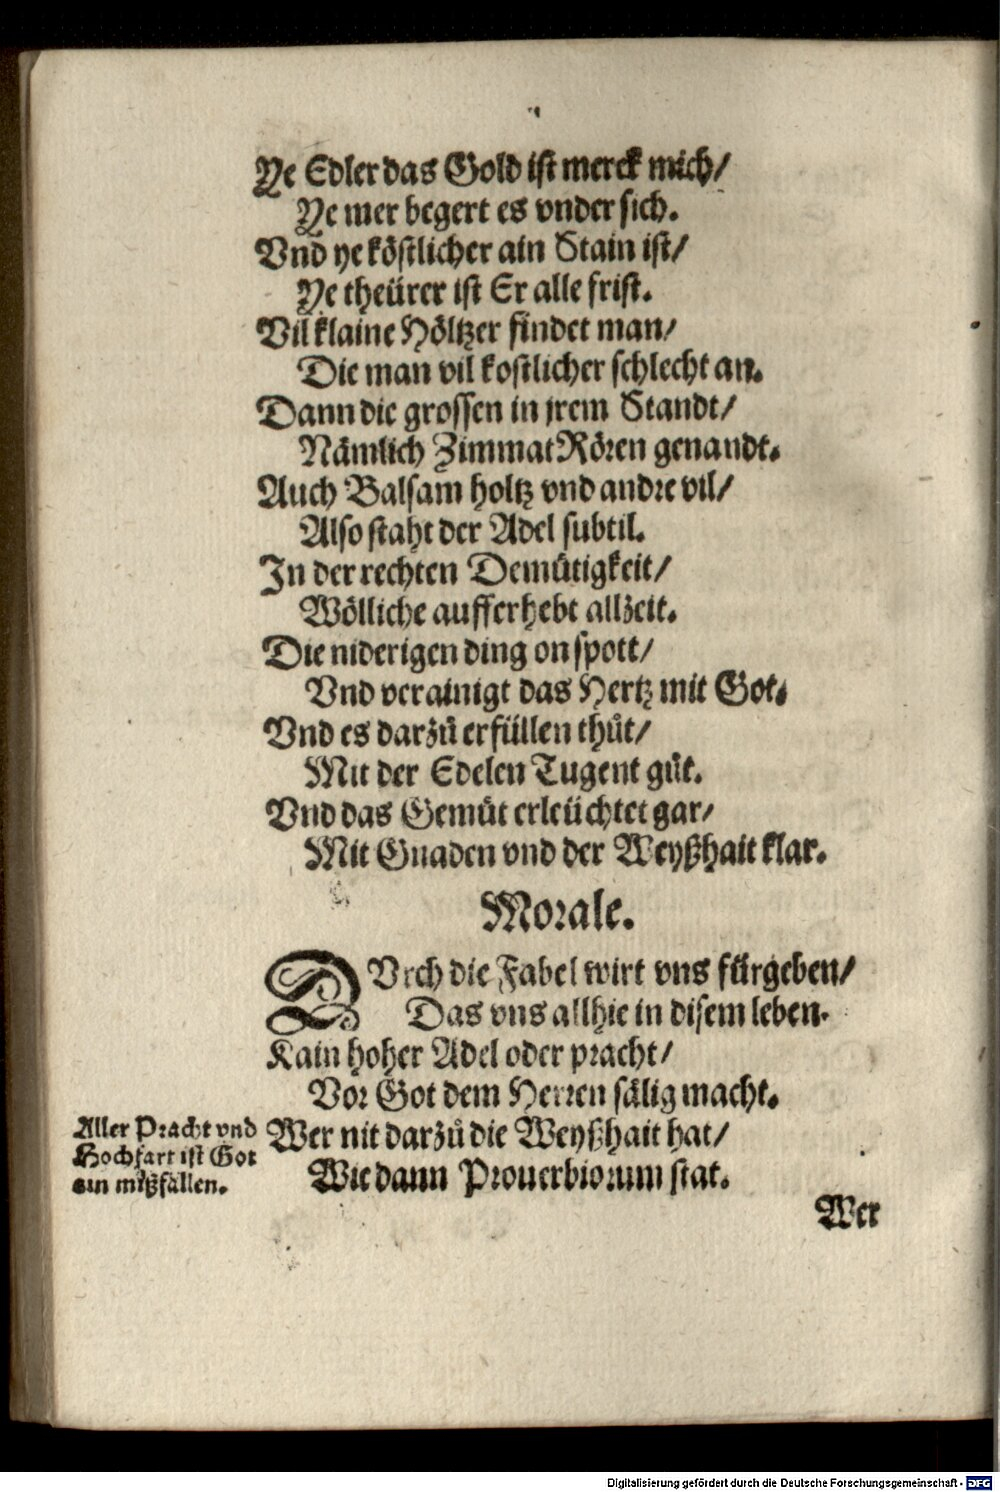 Ye Edler das Gold ist merck mich/
Ye mer begert es vnder sich.
Vnd ye köstlicher ain Stain ist/
Ye theürer ist Er alle frist.
Vil klaine Höltzer findet man/
Die man vil kostlicher schlecht an.
Dann die grossen in jrem Standt/
Nämlich Zimmat Rören genandt.
Auch Balsam holtz vnd andre vil/
Also staht der Adel subtil.
In der rechten Demütigkeit/
Wölliche aufferhebt allzeit.
Die niderigen ding on spott/
Vnd verainigt das Hertz mit Got.
Vnd es darzů erfüllen thůt/
Mit der Edelen Tugent gůt.
Vnd das Gemüt erleüchtet gar/
Mit Gnaden vnd der Weyßhait klar.
Morale.
DVrch die Fabel wirt vns fürgeben/
Das vns allhie in disem leben.
Kain hoher Adel oder pracht/
Vor Got dem Herren sälig macht.
Wer nit darzů die Weyßhait hat/
Wie dann Prouerbiorum stat.
Aller Pracht vnd
Hochfart ist Got
ain mißfallen.
Wer
Digitalisierung gefördert durch die Deutsche Forschungsgemeinschaft - DFG